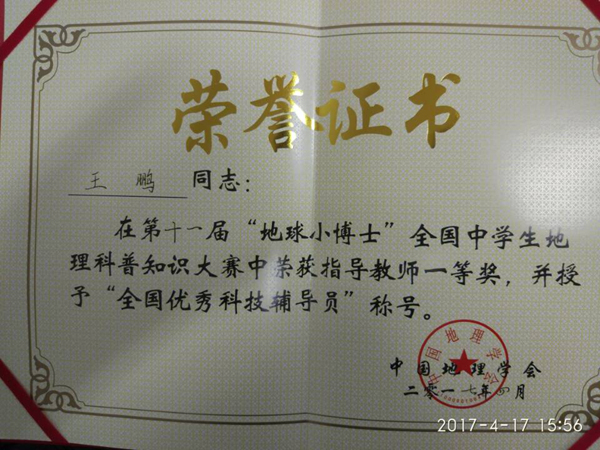 荣誉证书
王鹏 同志：
在第十一届“地球小博士”全国中学生地
理科普知识大赛中荣获指导教师一等奖，并授
予“全国优秀科技辅导员”称号。
中国地理学会
二零一七年四月
2017-4-17 15:56